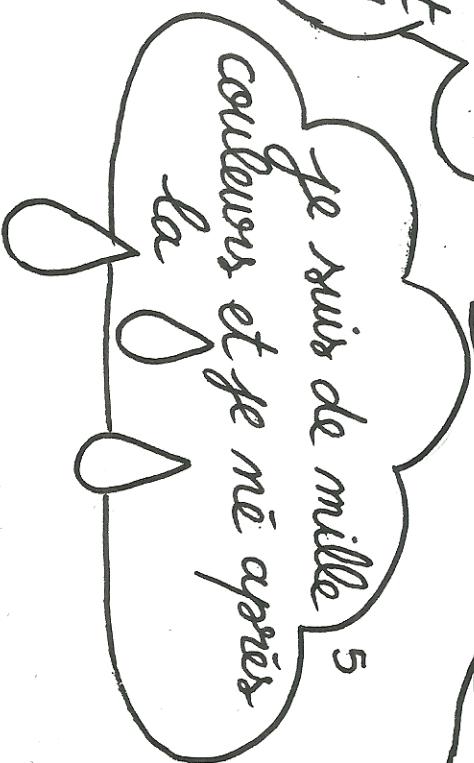 je suis de mille
couleurs et je né après
la
5
t